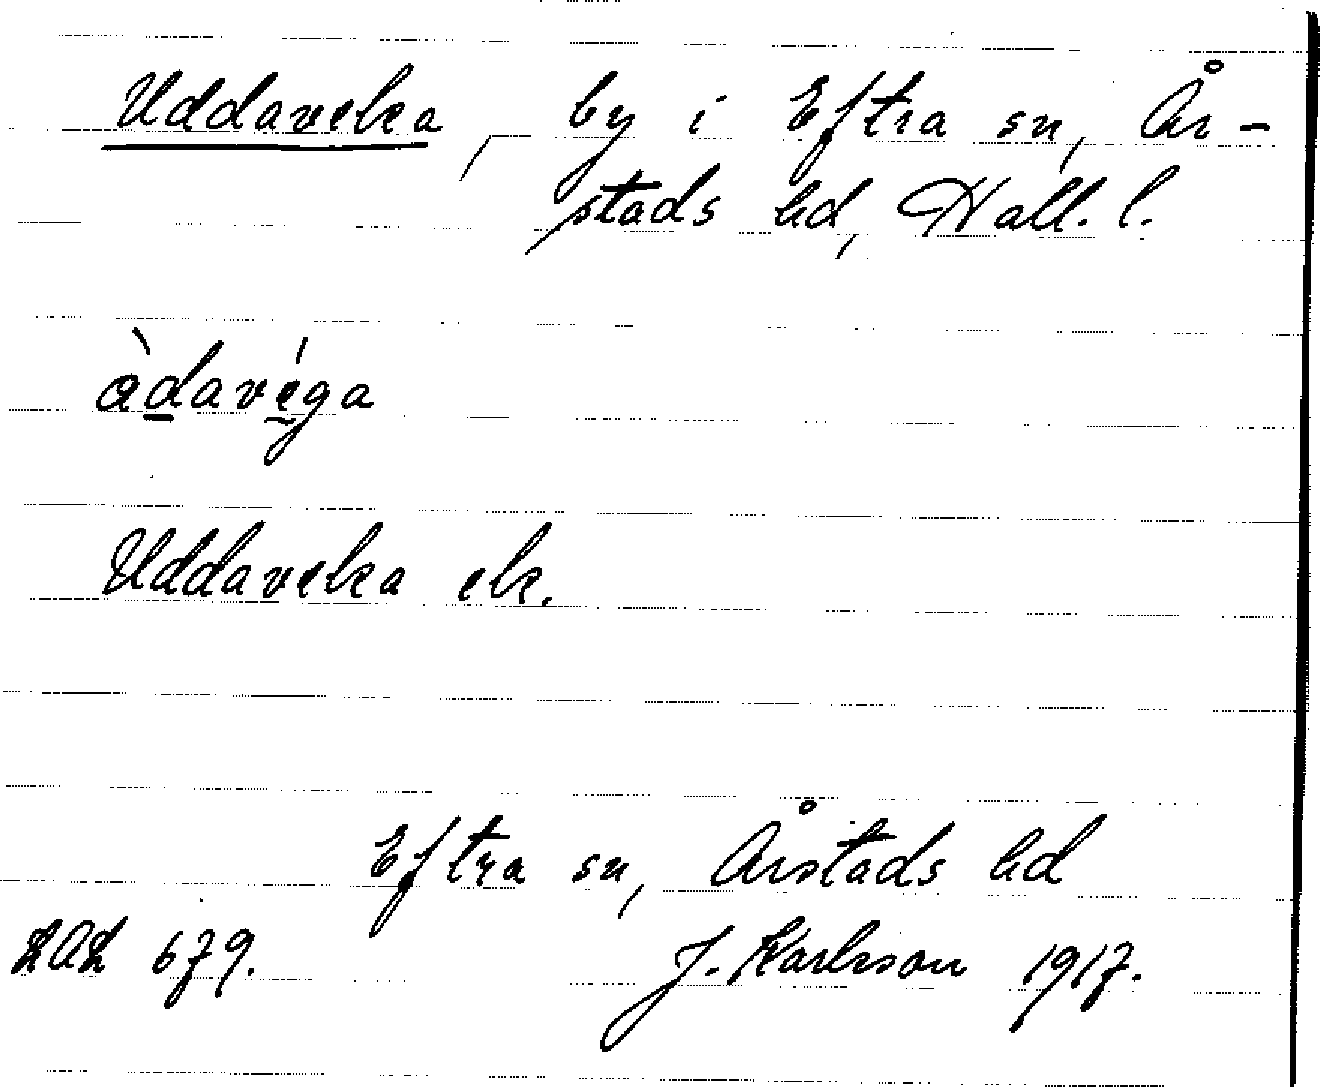 Uddaveka, by i Eftra sn, År-
stads hd, Hall. l.
àdavéga
Uddaveka ek.
Eftra sn, Årstads hd
LAL 679. J. Karlsson 1917.